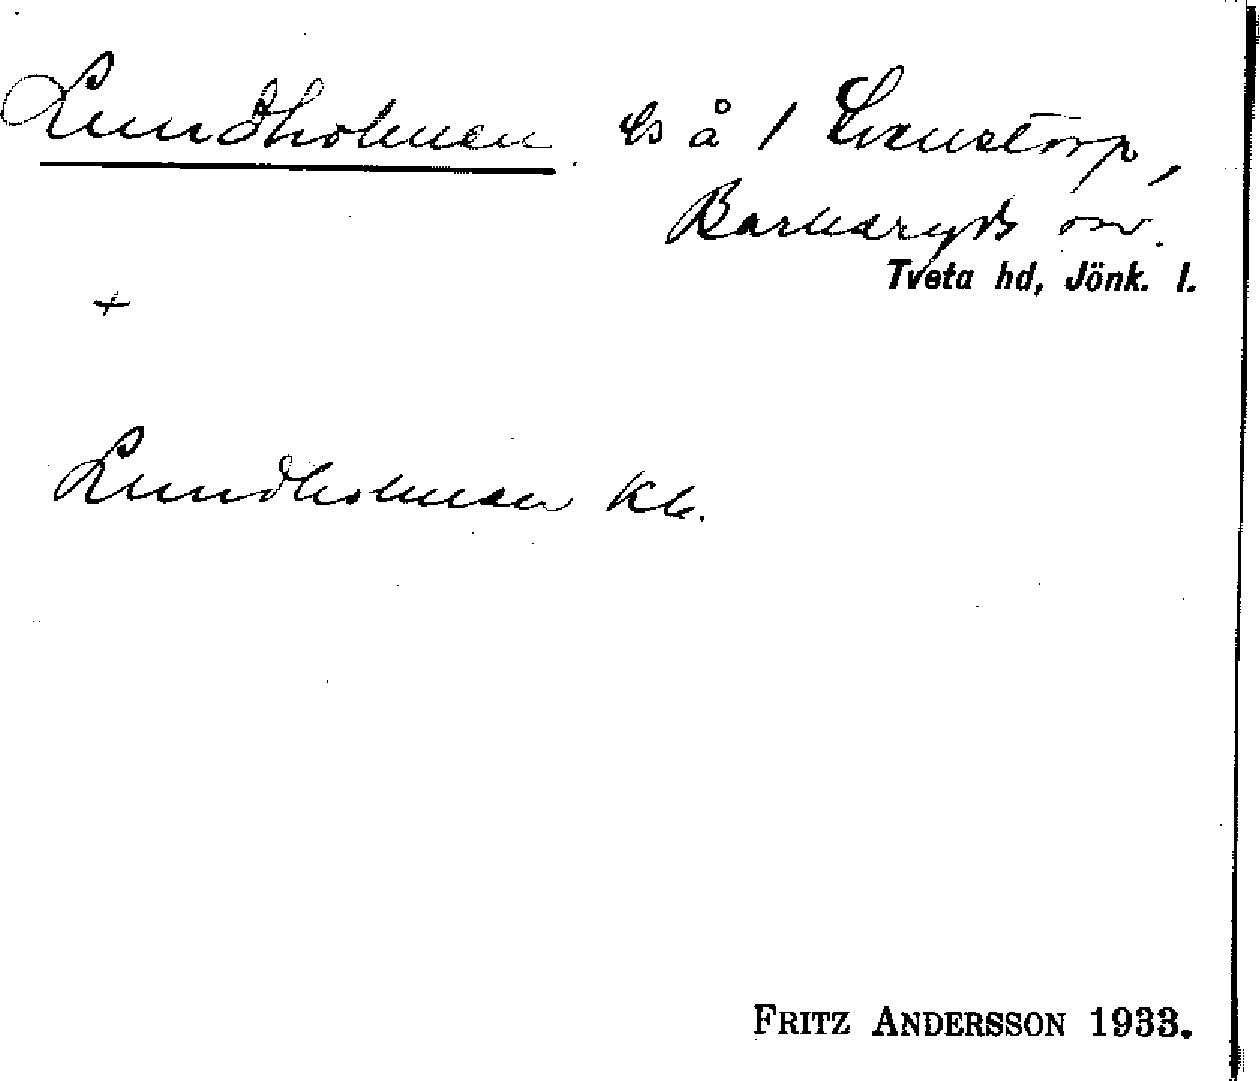 Lundholmen ls å 1 Evanstorp,
Barkeryds sn.
Tveta hd, Jönk. l.
+
Lundholmen Kb.
FRITZ ANDERSSON 1933.